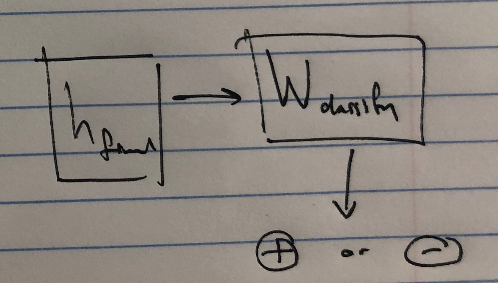 h final
W classify
+ or -